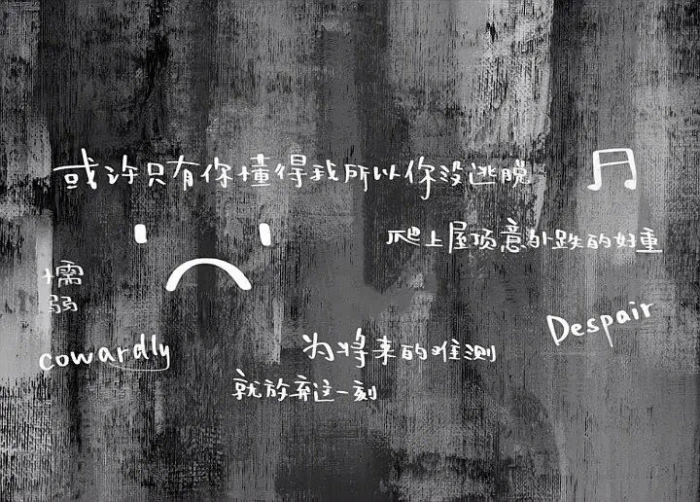 或许只有你懂得我所以你没逃脱
爬上屋顶意外跌的好重
懦
弱
Despair
cowardly
为将来的难测
就放弃这一刻